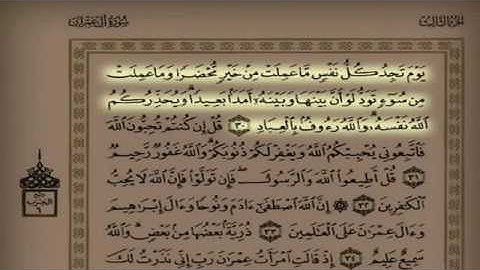 الجزء الثالث
سورة آل عمران
يَوْمَ تَجِدُ كُلُّ نَفْسٍ مَّا عَمِلَتْ مِنْ خَيْرٍ مُّحْضَرًا وَمَا عَمِلَتْ
مِن سُوٓءٍ تَوَدُّ لَوْ أَنَّ بَيْنَهَا وَبَيْنَهُۥٓ أَمَدًۢا بَعِيدًا ۗ وَيُحَذِّرُكُمُ
ٱللَّهُ نَفْسَهُۥ ۗ وَٱللَّهُ رَءُوفٌۢ بِٱلْعِبَادِ ٣٠ قُلْ إِن كُنتُمْ تُحِبُّونَ ٱللَّهَ
فَٱتَّبِعُونِى يُحْبِبْكُمُ ٱللَّهُ وَيَغْفِرْ لَكُمْ ذُنُوبَكُمْ ۗ وَٱللَّهُ غَفُورٌ رَّحِيمٌ
٣١ قُلْ أَطِيعُوا۟ ٱللَّهَ وَٱلرَّسُولَ ۖ فَإِن تَوَلَّوْا۟ فَإِنَّ ٱللَّهَ لَا يُحِبُّ
ٱلْكَٰفِرِينَ ٣٢ ۞ إِنَّ ٱللَّهَ ٱصْطَفَىٰٓ ءَادَمَ وَنُوحًا وَءَالَ إِبْرَٰهِيمَ
وَءَالَ عِمْرَٰنَ عَلَى ٱلْعَٰلَمِينَ ٣٣ ذُرِّيَّةَۢ بَعْضُهَا مِنۢ بَعْضٍ ۗ وَٱللَّهُ
سَمِيعٌ عَلِيمٌ ٣٤ إِذْ قَالَتِ ٱمْرَأَتُ عِمْرَٰنَ رَبِّ إِنِّى نَذَرْتُ لَكَ